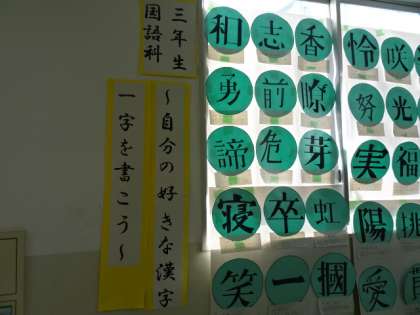 三年生
国語科
～自分の好きな漢字
一字を書こう～
和 志 香 怜 咲
勇 前 瞭 努 光
諦 危 芽 実 福
寝 卒 虹 陽
笑 一 國 愛